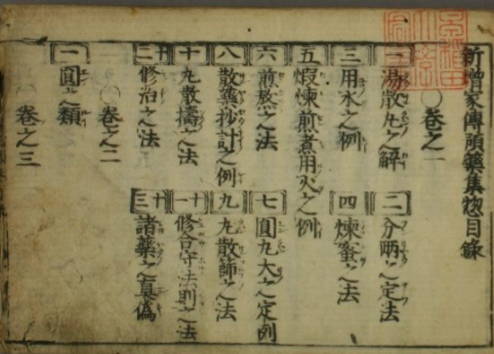 新増家傳預藥集惣目錄
〇卷之一
一 湯散丸之解
二 分兩之定法
三 用水之例
四 煉蜜之法
五 煆煉煎煮用火之例
六 煎熬之法
七 圓丸大之定例
八 散藥抄計之例
九 丸散篩之法
十 丸散擣之法
十一 修合守法則之法
十二 修治之法
十三 諸藥之真偽
〇卷之二
一 圓之類
〇卷之三